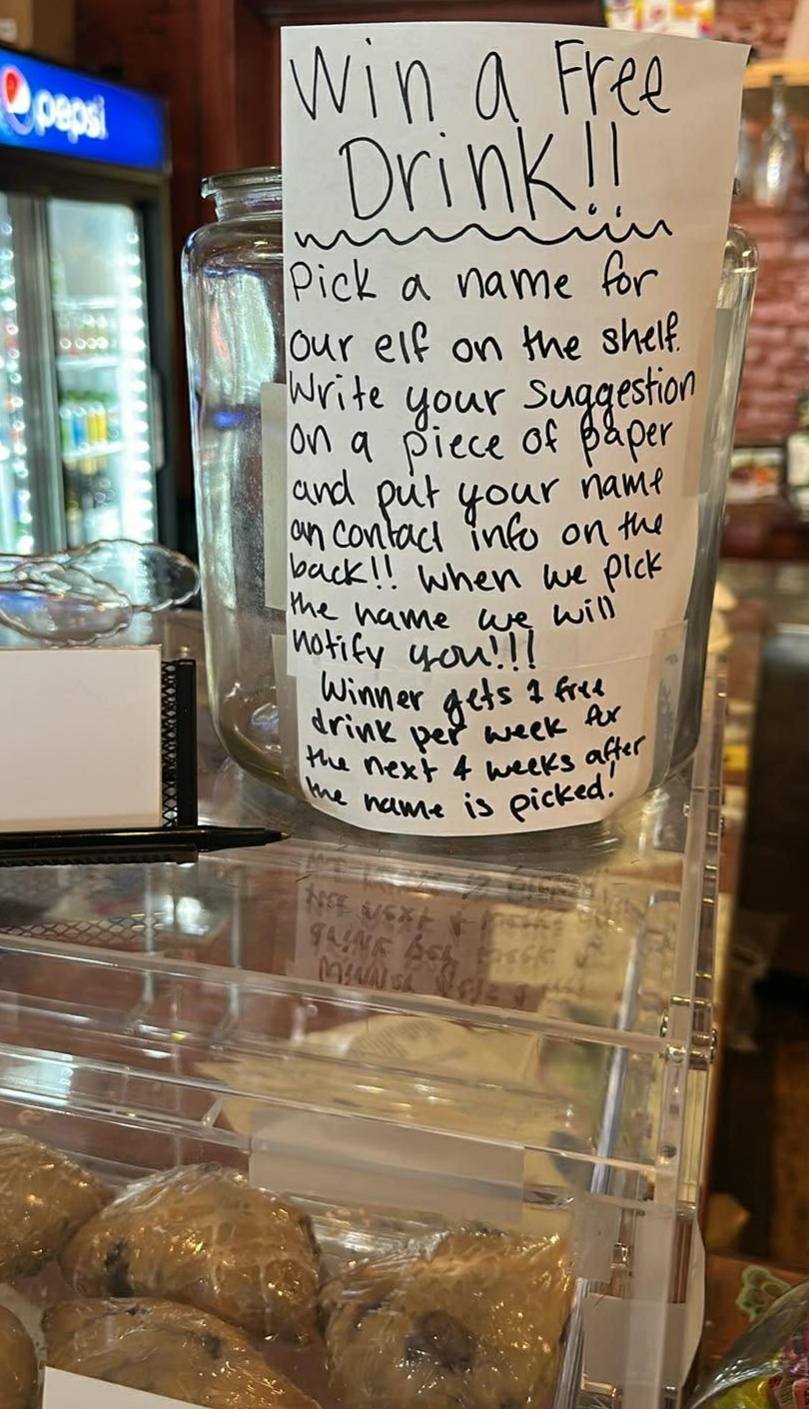 pepsi
Win a Free
Drink!!
Pick a name for
our elf on the shelf.
Write your suggestion
on a piece of paper
and put your name
an contact info on the
back!! When we pick
the name we will
notify you!!!
Winner gets 1 free
drink per week for
the next 4 weeks after
the name is picked!